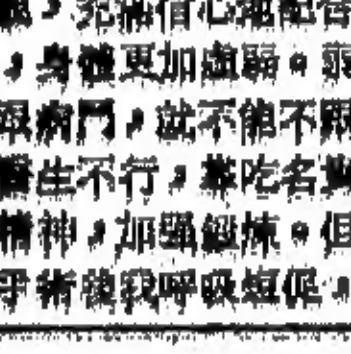 充滿信心地配合
，身體更加虛弱。
病鬥，就不能不
生不行，藥吃名
精神，加強鍛煉。但
手術後我呼吸短促，